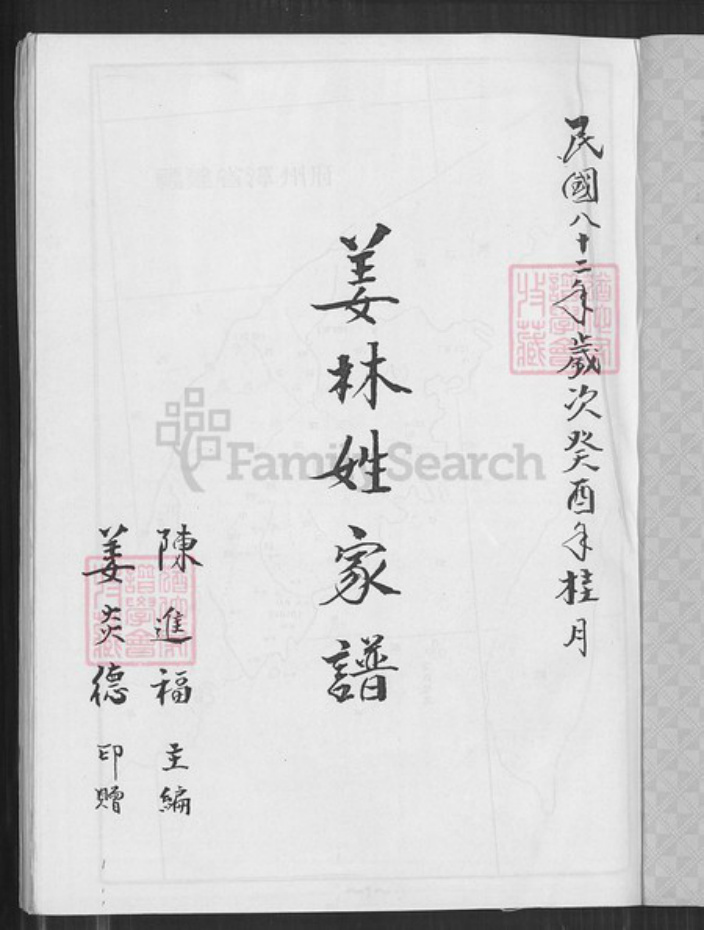 民國八十二年歲次癸酉年桂月
姜林姓家譜
陳進福主編
姜炎德印贈
FamilySearch